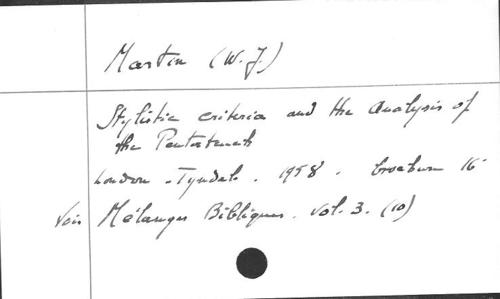 Martin (W.J.)
Stylistic criteria and the analysis of
the Pentateuch
London - Tyndale . 1958 . brochure 16
Voir Mélanges Bibliques. vol. 3. (10)